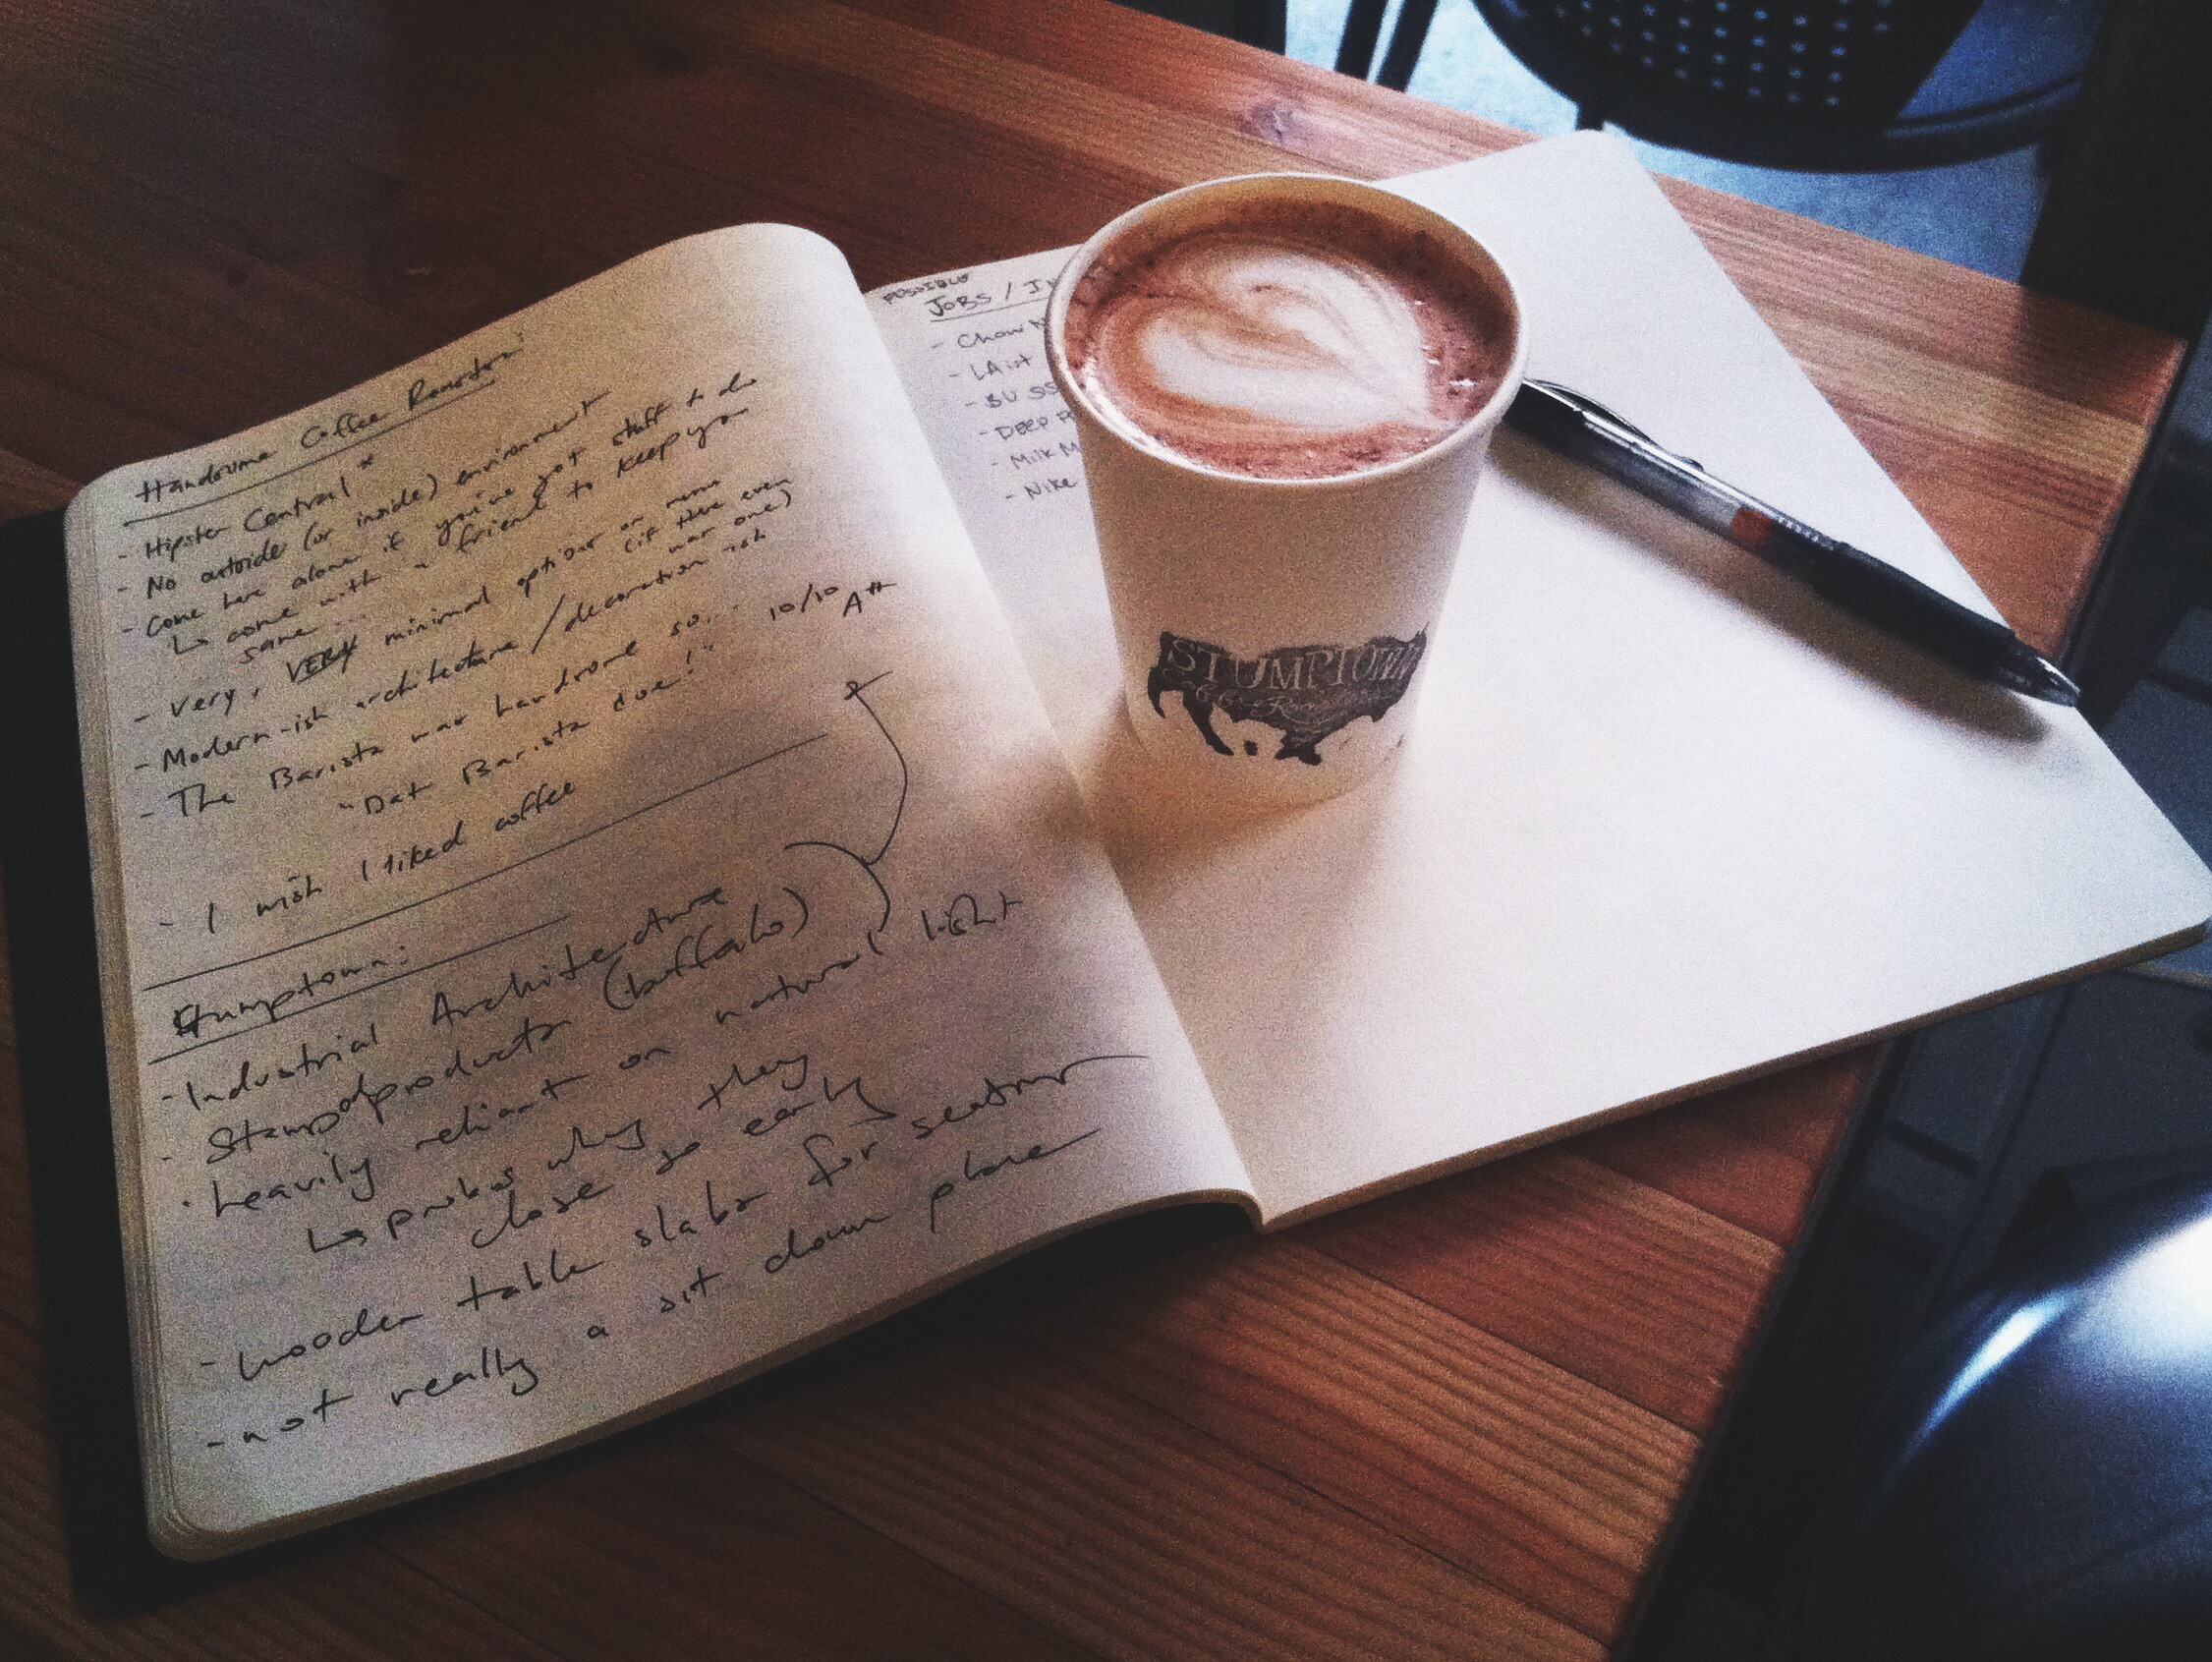 Handsome Coffee Roasters
- Hipster Central *
- No outside (or inside) environment
- Come here alone if you've got stuff to do
↳ come with a friend to keep you
sane...
- Very, VERY minimal options on menu
(if there even
was one)
- Modern-ish architecture/decoration-ish
- The Barista was handsome so... 10/10 A++
"Dat Barista doe!"
- I wish I liked coffee
Stumptown:
- Industrial Architecture
- Stamped products (buffalo)
- heavily reliant on natural light
↳ probs why they
close so early
- wooden table slabs for seating
- not really a sit down place
POSSIBLE
JOBS / 
- Chow
- LAist
- DEEP
- Milk
- Nike
STUMPTOWN